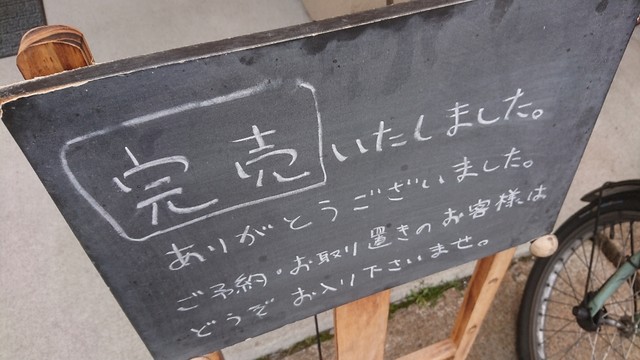 完売いたしました。
ありがとうございました。
ご予約・お取り置きのお客様は
どうぞお入り下さいませ。